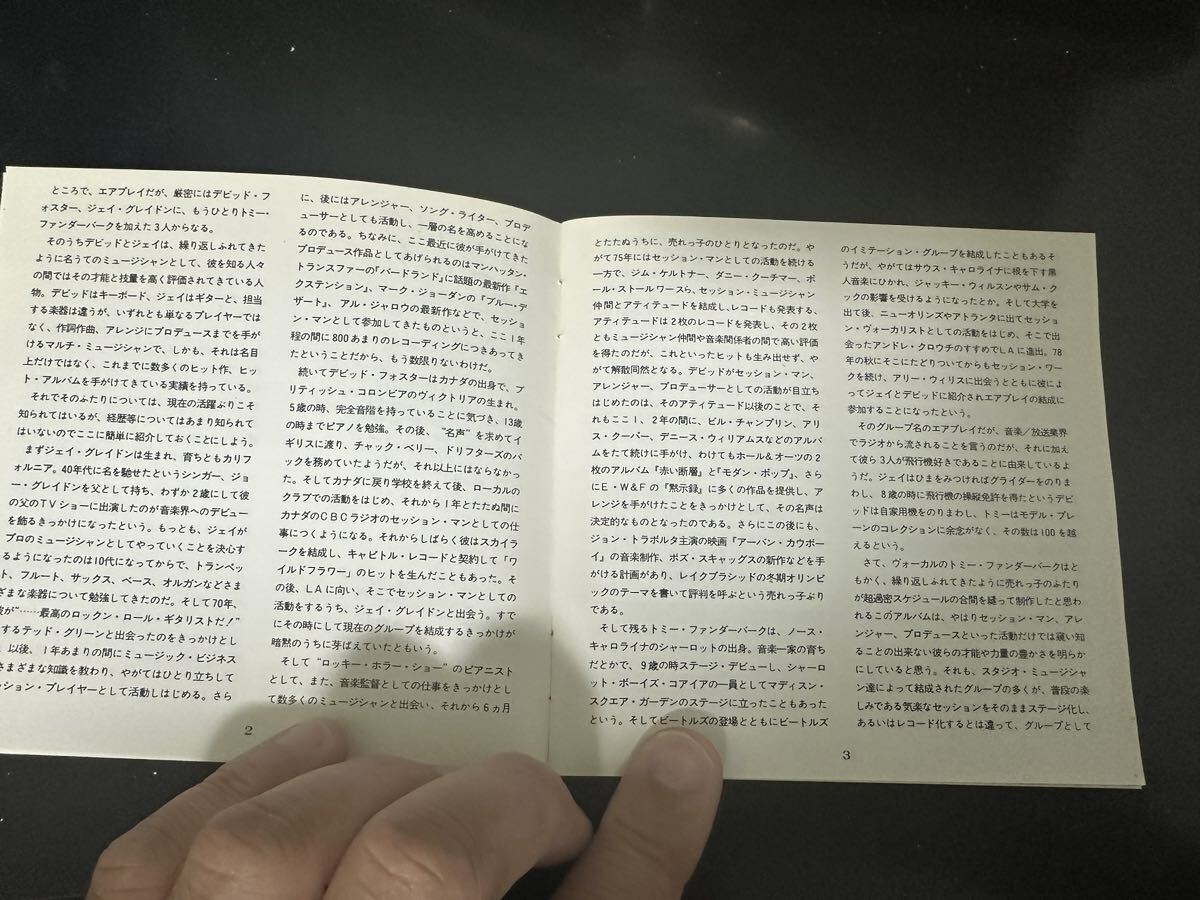 ところで、エアプレイだが、厳密にはデビッド・フ
ォスター、ジェイ・グレイドンに、もうひとりトミー・
ファンダーバークを加えた3人からなる。
そのうちデビッドとジェイは、繰り返しふれてきた
ように名うてのミュージシャンとして、彼を知る人々
の間ではその才能と技量を高く評価されてきている人
物。デビッドはキーボード、ジェイはギターと、担当
する楽器は違うが、いずれとも単なるプレイヤーでは
なく、作詞作曲、アレンジにプロデュースまでを手が
けるマルチ・ミュージシャンで、しかも、それは名目
上だけではなく、これまでに数多くのヒット作、ヒッ
ト・アルバムを手がけてきている実績を持っている。
それでそのふたりについては、現在の活躍ぶりこそ
知られてはいるが、経歴等についてはあまり知られて
はいないのでここに簡単に紹介しておくことにしよう。
まずジェイ・グレイドンは生まれ、育ちともカリフ
ォルニア。40年代に名を馳せたというシンガー、ジョ
ー・グレイドンを父として持ち、わずか2歳にして彼
の父のTVショーに出演したのが音楽界へのデビュー
を飾るきっかけになったという。もっとも、ジェイが
プロのミュージシャンとしてやっていくことを決心す
るようになったのは10代になってからで、トランペッ
ト、フルート、サックス、ベース、オルガンなどさま
ざまな楽器について勉強してきたのだ。そして70年、
が“……最高のロックン・ロール・ギタリストだ!”
するテッド・グリーンと出会ったのをきっかけとし
、以後、1年あまりの間にミュージック・ビジネス
さまざまな知識を教わり、やがてはひとり立ちして
ッション・プレイヤーとして活動しはじめる。さら
に、後にはアレンジャー、ソング・ライター、プロデ
ューサーとしても活動し、一層の名を高めることにな
るのである。ちなみに、ここ最近に彼が手がけてきた
プロデュース作品としてあげられるのはマンハッタン・
トランスファーの『バードランド』に話題の最新作『エ
クステンション』、マーク・ジョーダンの『ブルー・デ
ザート』、アル・ジャロウの最新作などで、セッショ
ン・マンとして参加してきたものというと、ここ1年
程の間に800あまりのレコーディングにつきあってき
たということだから、もう数限りないわけだ。
続いてデビッド・フォスターはカナダの出身で、ブ
リティッシュ・コロンビアのヴィクトリアの生まれ。
5歳の時、完全音階を持っていることに気づき、13歳
の時までピアノを勉強。その後、“名声”を求めてイ
ギリスに渡り、チャック・ベリー、ドリフターズのバ
ックを務めていたようだが、それ以上にはならなかっ
た。そしてカナダに戻り学校を終えて後、ローカルの
クラブでの活動をはじめ、それから1年とたたぬ間に
カナダのCBCラジオのセッション・マンとしての仕
事につくようになる。それからしばらく彼はスカイラ
ークを結成し、キャピトル・レコードと契約して「ワ
イルドフラワー」のヒットを生んだこともあった。そ
の後、LAに向い、そこでセッション・マンとしての
活動をするうち、ジェイ・グレイドンと出会う。すで
にその時にして現在のグループを結成するきっかけが
暗黙のうちに芽ばえていたともいう。
そして“ロッキー・ホラー・ショー”のピアニスト
として、また、音楽監督としての仕事をきっかけとし
て数多くのミュージシャンと出会い、それから6ヵ月
2
とたたぬうちに、売れっ子のひとりとなったのだ。や
がて75年にはセッション・マンとしての活動を続ける
一方で、ジム・ケルトナー、ダニー・クーチマー、ポ
ール・ストールワースら、セッション・ミュージシャン
仲間とアティテュードを結成し、レコードも発表する、
アティテュードは2枚のレコードを発表し、その2枚
ともミュージシャン仲間や音楽関係者の間で高い評価
を得たのだが、これといったヒットも生み出せず、や
がて解散同然となる。デビッドがセッション・マン、
アレンジャー、プロデューサーとしての活動が目立ち
はじめたのは、そのアティテュード以後のことで、そ
れもここ1、2年の間に、ビル・チャンプリン、アリ
ス・クーパー、デニース・ウィリアムスなどのアルバ
ムをたて続けに手がけ、わけてもホール&オーツの2
枚のアルバム『赤い断層』と『モダン・ポップ』、さら
にE・W&Fの『黙示録』に多くの作品を提供し、ア
レンジを手がけたことをきっかけとして、その名声は
決定的なものとなったのである。さらにこの後にも、
ジョン・トラボルタ主演の映画『アーバン・カウボー
イ』の音楽制作、ボズ・スキャッグスの新作などを手
がける計画があり、レイクプラシッドの冬期オリンピ
ックのテーマを書いて評判を呼ぶという売れっ子ぶり
である。
そして残るトミー・ファンダーバークは、ノース・
キャロライナのシャーロットの出身。音楽一家の育ち
だとかで、9歳の時ステージ・デビューし、シャーロ
ット・ボーイズ・コアイアの一員としてマディスン・
スクエア・ガーデンのステージに立ったこともあった
という。そしてビートルズの登場とともにビートルズ
のイミテーション・グループを結成したこともあるそ
うだが、やがてはサウス・キャロライナに根を下す黒
人音楽にひかれ、ジャッキー・ウィルスンやサム・ク
ックの影響を受けるようになったとか。そして大学を
出て後、ニューオリンズやアトランタに出てセッショ
ン・ヴォーカリストとしての活動をはじめ、そこで出
会ったアンドレ・クロウチのすすめでLAに進出。78
年の秋にそこにたどりついてからもセッション・ワー
クを続け、アリー・ウィリスに出会うとともに彼によ
ってジェイとデビッドに紹介されエアプレイの結成に
参加することになったという。
そのグループ名のエアプレイだが、音楽/放送業界
でラジオから流されることを言うのだが、それに加え
て彼ら3人が飛行機好きであることに由来しているよ
うだ。ジェイはひまをみつければグライダーをのりま
わし、8歳の時に飛行機の操縦免許を得たというデビ
ッドは自家用機をのりまわし、トミーはモデル・プレ
ーンのコレクションに余念がなく、その数は100を越
えるという。
さて、ヴォーカルのトミー・ファンダーバークはと
もかく、繰り返しふれてきたように売れっ子のふたり
が超過密スケジュールの合間を縫って制作したと思わ
れるこのアルバムは、やはりセッション・マン、アレ
ンジャー、プロデュースといった活動だけでは窺い知
ることの出来ない彼らの才能や力量の豊かさを明らか
にしていると思う。それも、スタジオ・ミュージシャ
ン達によって結成されたグループの多くが、普段の楽
しみである気楽なセッションをそのままステージ化し、
あるいはレコード化するとは違って、グループとして
3